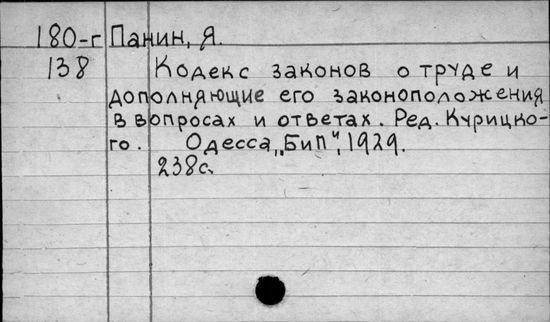 180-г Панин, Я.
138 Кодекс законов о труде и
дополняющие его законоположения
в вопросах и ответах. Ред. Курицко-
го. Одесса, „Бип", 1929.
238с.